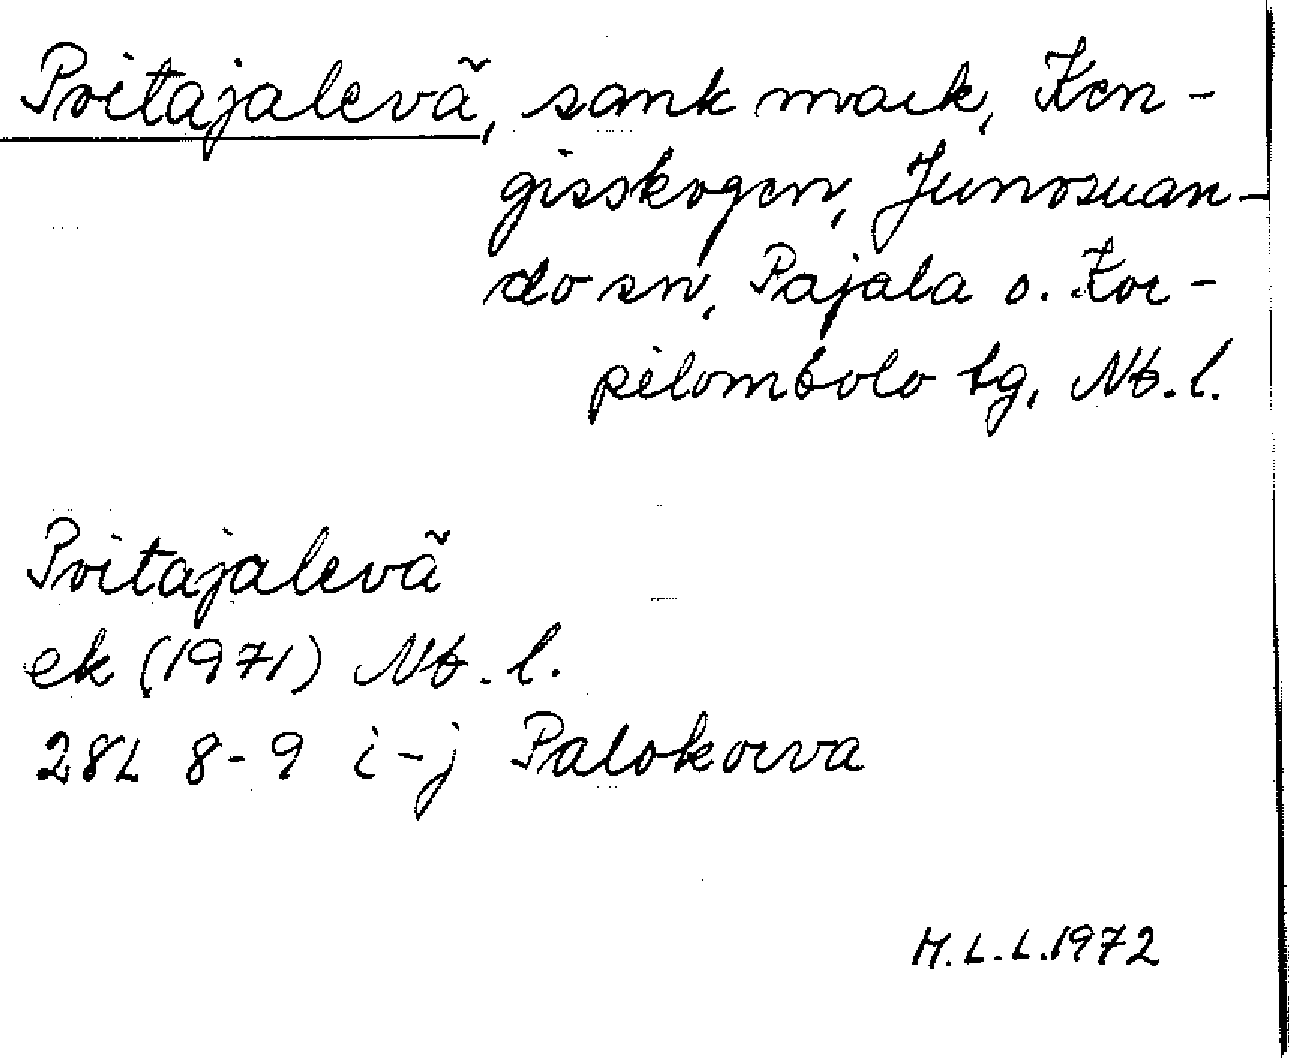 Poitajalevä, sank mark, Ken-
gisskogen, Junosuan-
do sn, Pajala o. Kor-
pilombolo tg, Nb. l.
Poitajalevä
ek (1971) Nb. l.
28L 8-9 i-j Palokorva
M.L.L.1972